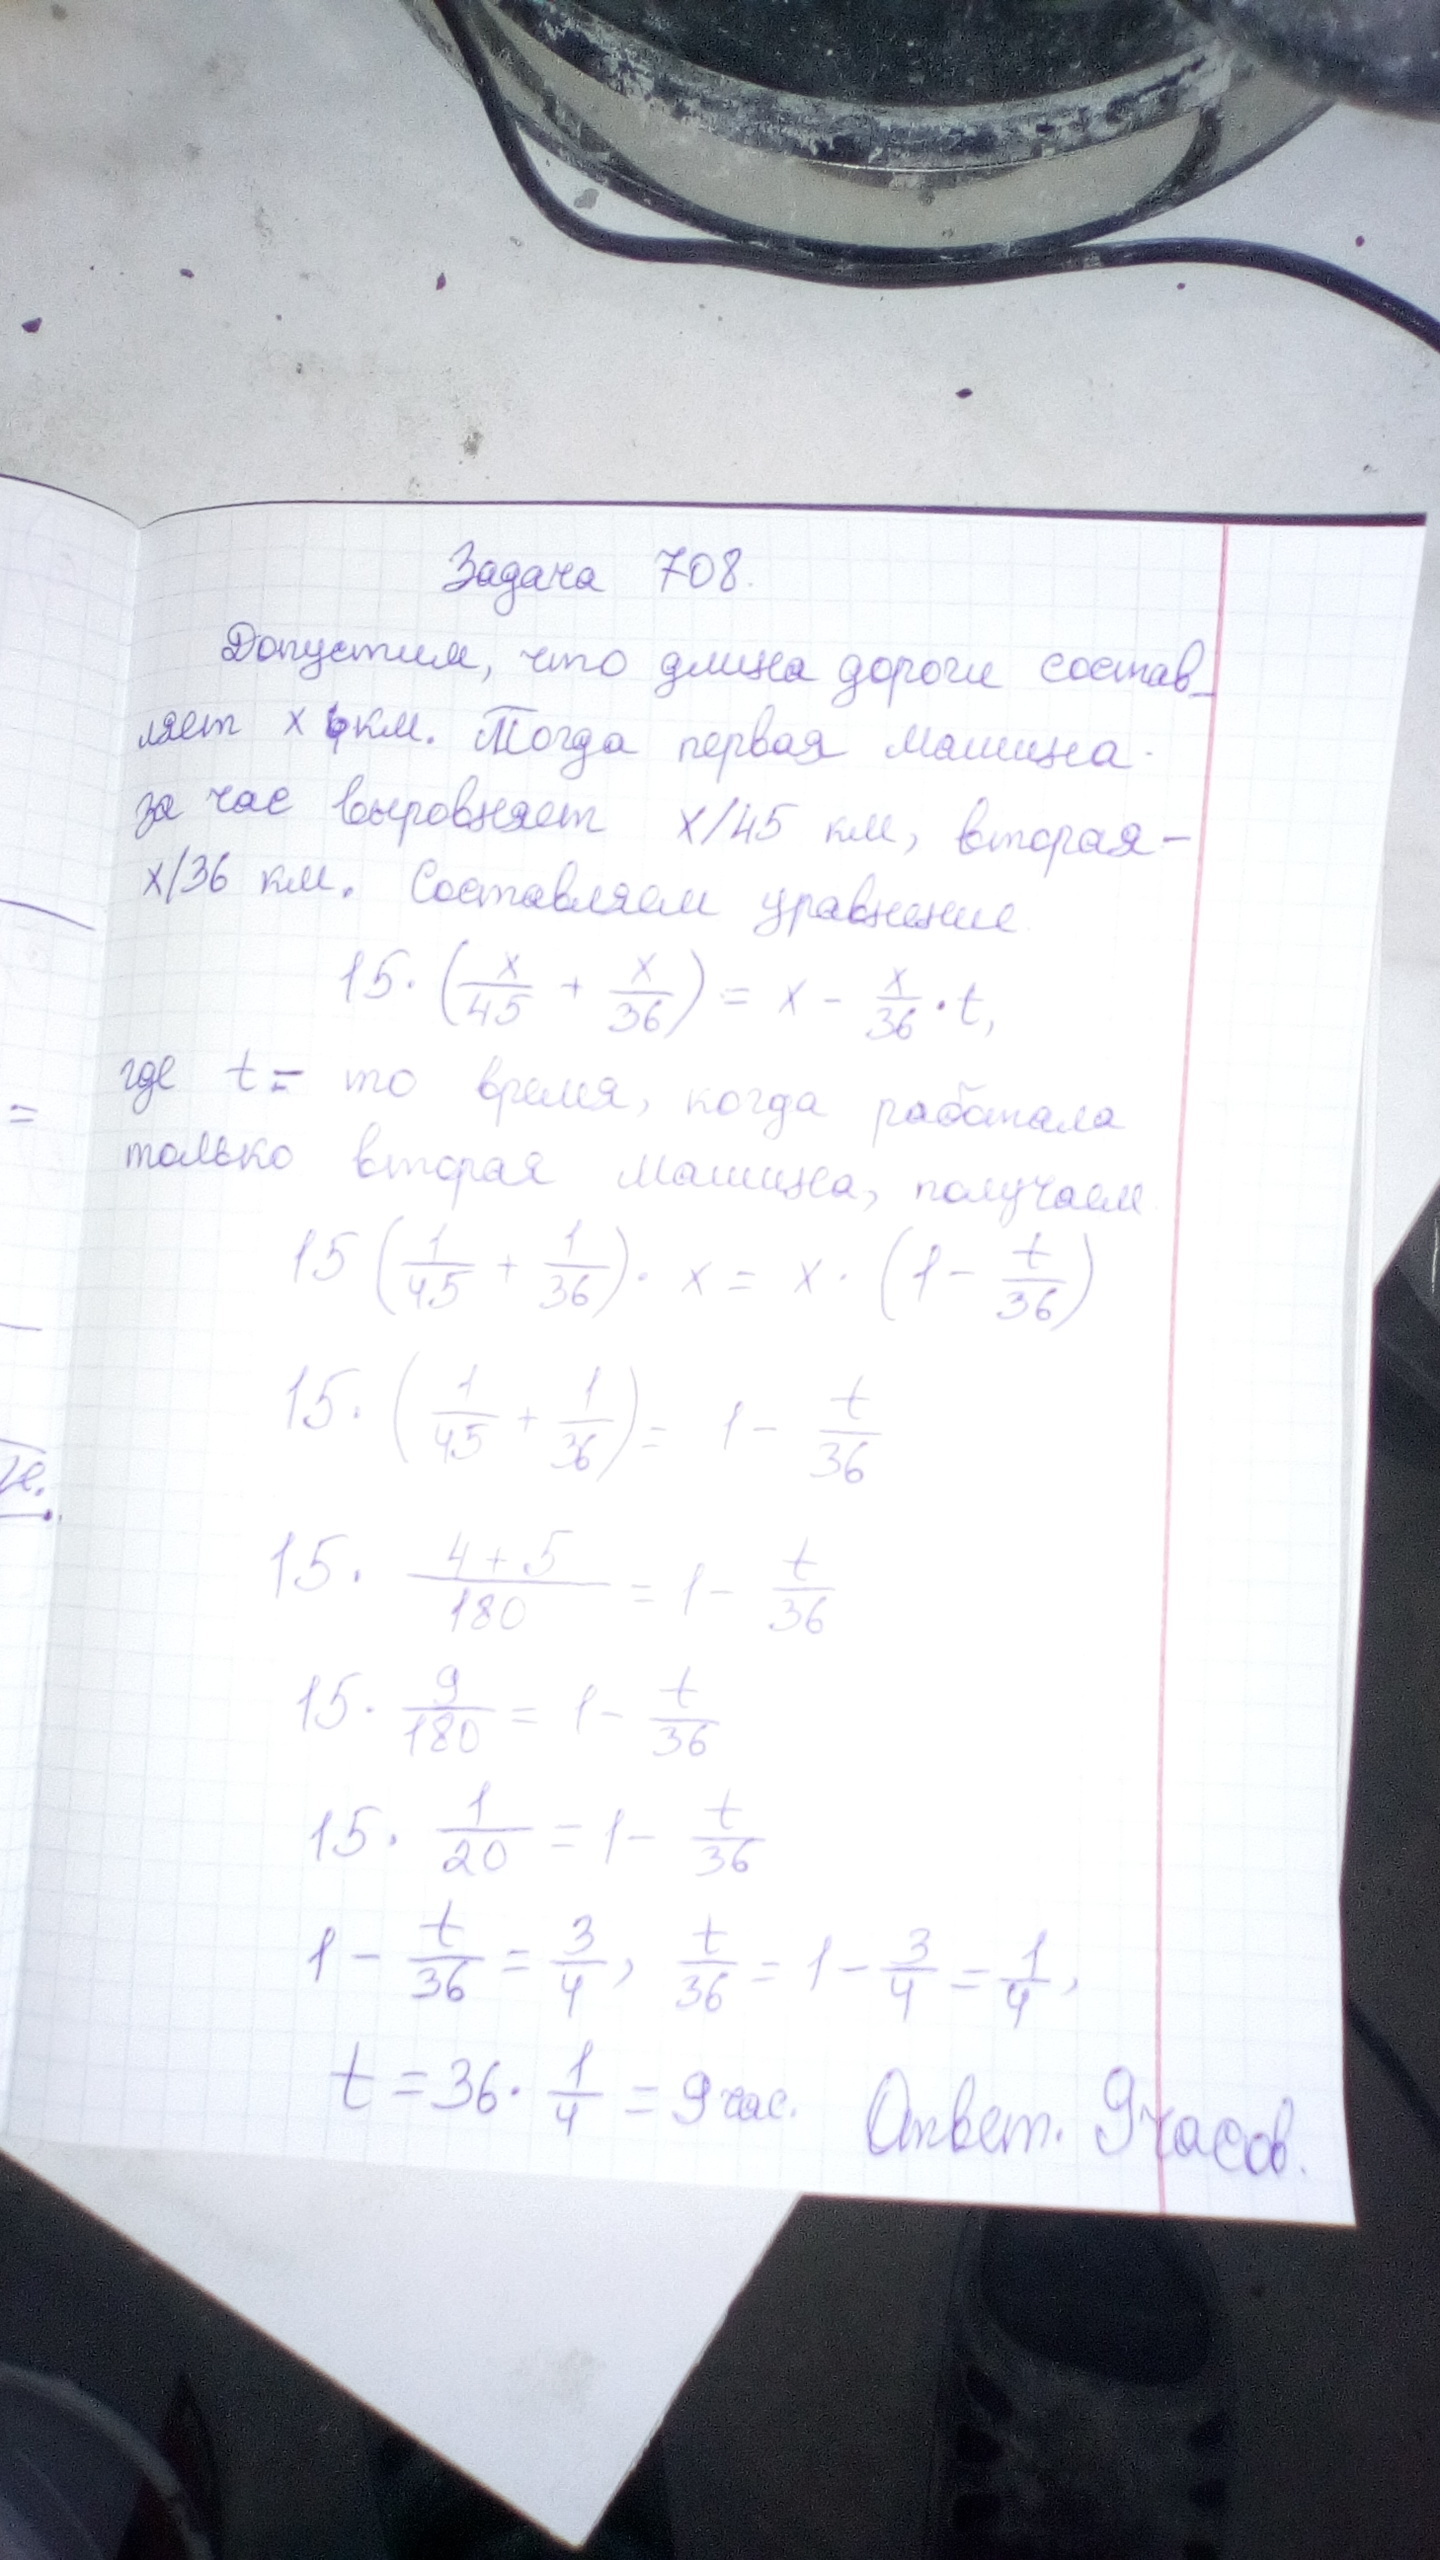 Задача 708.
Допустим, что длина дороги состав-
ляет x км. Тогда первая машина
за час выровняет x/45 км, вторая –
x/36 км. Составляем уравнение
15·(x/45 + x/36) = x - x/36 · t,
где t = то время, когда работала
только вторая машина, получаем
15(1/45 + 1/36)·x = x·(1 - t/36)
15·(1/45 + 1/36) = 1 - t/36
15· (4+5)/180 = 1 - t/36
15· 9/180 = 1 - t/36
15· 1/20 = 1 - t/36
1 - t/36 = 3/4, t/36 = 1 - 3/4 = 1/4,
t = 36· 1/4 = 9 час. Ответ. 9 часов.
=